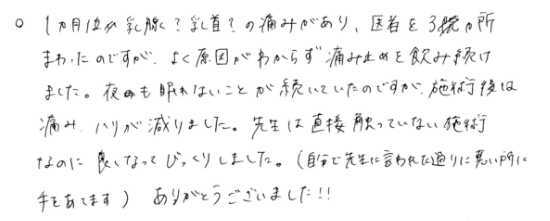 ○ 1ヵ月位から乳腺？乳首？の痛みがあり、医者を3軒か所
まわったのですが、よく原因がわからず痛み止めを飲み続け
ました。夜も眠れないことが続いていたのですが、施術後は
痛み、ハリが減りました。先生は直接触っていない施術
なのに良くなってびっくりしました。（自分で先生に言われた通りに悪い所に
手をあてます） ありがとうございました!!